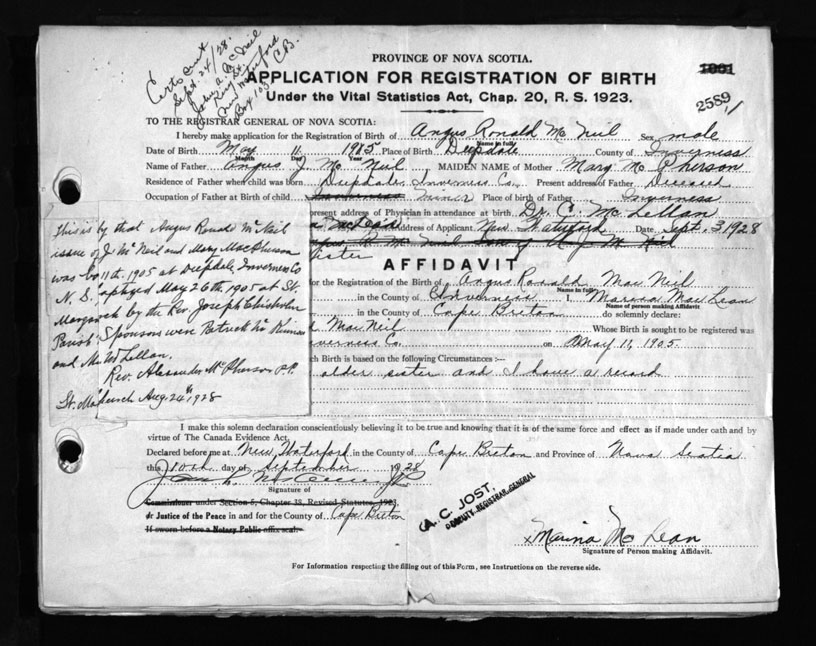 Certs sent
Sept. 24/28.
John A. Mc Neil
King St.
New Waterford
Box 103 C.B.
PROVINCE OF NOVA SCOTIA.
APPLICATION FOR REGISTRATION OF BIRTH
Under the Vital Statistics Act, Chap. 20, R. S. 1923.
2589
TO THE REGISTRAR GENERAL OF NOVA SCOTIA:
I hereby make application for the Registration of Birth of Angus Ronald Mc Neil Sex male
Name in full
Date of Birth May 11 1905 Place of Birth Deepdale County of Inverness
Month Day Year
Name of Father Angus J Mc Neil MAIDEN NAME of Mother Mary Mc Pherson
Residence of Father when child was born Deepdale, Inverness Co. Present address of Father Deceased
Occupation of Father at Birth of child miner Place of birth of Father Inverness
present address of Physician in attendance at birth Dr. C. McLellan
Address of Applicant New Waterford Date Sept. 3 1928
Sister
AFFIDAVIT
for the Registration of the Birth of Angus Ronald Mac Neil
Name in full
in the County of Inverness I, Marina MacLean
Name of person making Affidavit
in the County of Cape Breton do solemnly declare:
d MacNeil Whose Birth is sought to be registered was
verness Co. on May 11, 1905.
ch Birth is based on the following Circumstances :—
older sister and I have a record
This is by that Angus Ronald McNeil
issue of J. McNeil and Mary MacPherson
was 11th, 1905 at Deepdale, Inverness Co
N. S. Baptized May 26th, 1905 at St.
Margaret's by the Rev. Joseph Chisholm
Parish. Sponsors were Patrick Mc Kinnon
and McLellan.
Rev. Alexander McPherson P.P.
St. Aug. 24th, 1928
I make this solemn declaration conscientiously believing it to be true and knowing that it is of the same force and effect as if made under oath and by
virtue of The Canada Evidence Act.
Declared before me at New Waterford in the County of Cape Breton and Province of Nova Scotia
this 10th day of September 1928
Signature of
Commissioner under Section 5, Chapter 38, Revised Statutes, 1923,
or Justice of the Peace in and for the County of Cape Breton
If sworn before a Notary Public affix seal.
A. C. JOST,
DEPUTY REGISTRAR GENERAL
x Marina McLean
Signature of Person making Affidavit.
For Information respecting the filling out of this Form, see Instructions on the reverse side.